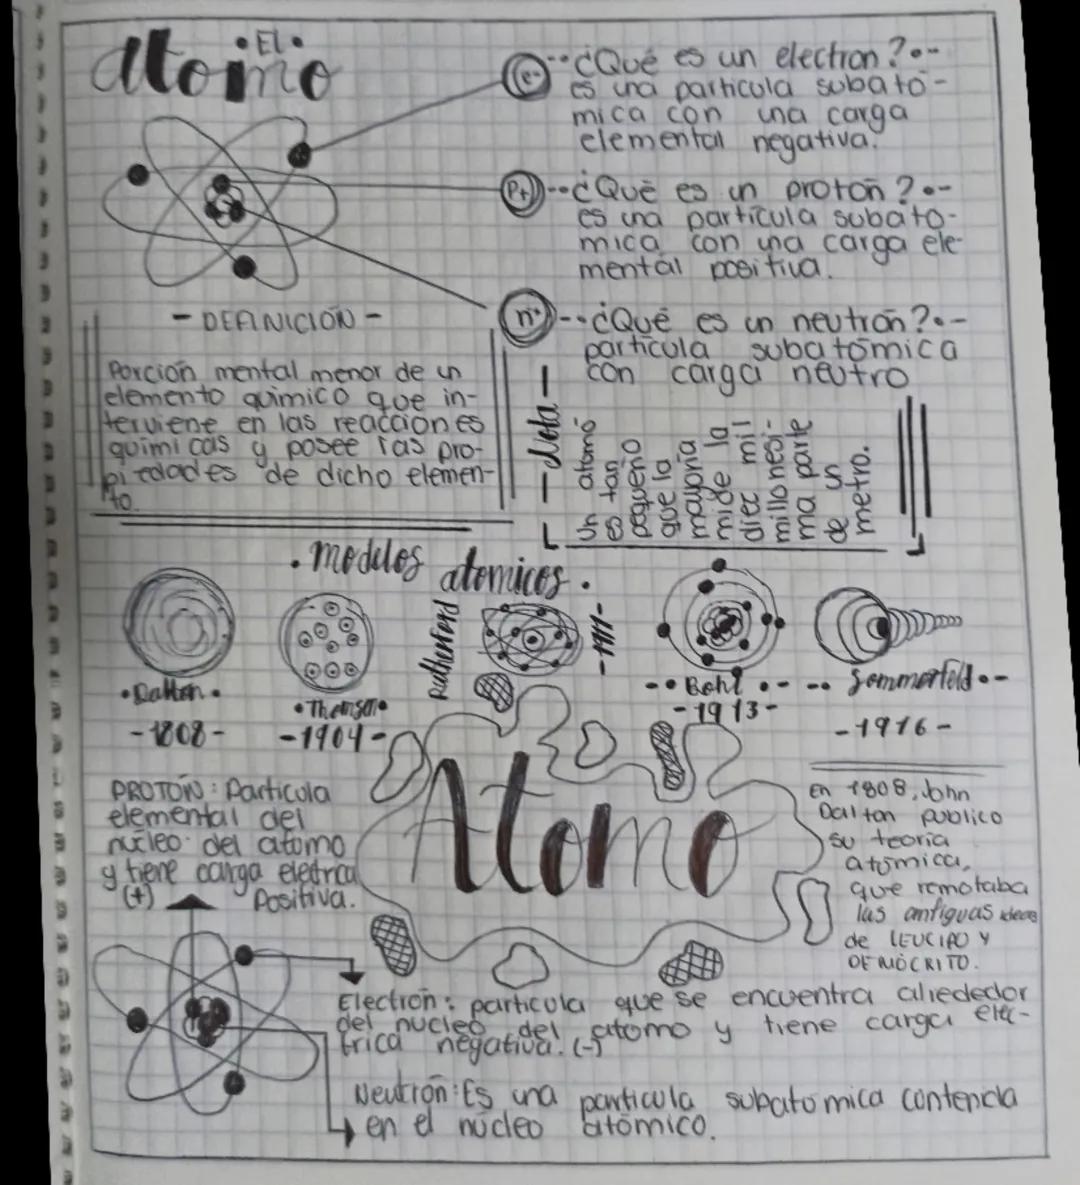 •El•
Atomo
e-
¿Qué es un electron?
es una particula subató-
mica con una carga
elemental negativa.
P+
¿Qué es un protón?
es una partícula subató-
mica con una carga ele-
mental positiva.
n°
¿Qué es un neutrón?
partícula subatómica
con carga neutro
- DEFINICIÓN -
Porción mental menor de un
elemento quimico que in-
terviene en las reacciones
quimicas y posee las pro-
piedades de dicho elemen-
to.
- Nota -
un atomo
es tan
pequeño
que la
mayoria
mide la
diez mil
millonesi-
ma parte
de un
metro.
. modelos atomicos.
•Dalton.
-1808-
•Thomson•
-1904-
Rutherford
-1911-
Bohr
-1913-
Sommerfeld
-1916-
PROTÓN: Particula
elemental del
núcleo del atomo
y tiene carga electrica
(+) Positiva.
Atomo
En 1808, John
Dalton publico
su teoria
atomica,
que remotaba
las antiguas ideas
de LEUCIPO Y
DEMÓCRITO.
Electrón: particula que se encuentra aliededor
del nucleo del atomo y tiene carga eléc-
trica negativa. (-)
Neutrón: Es una particula subatómica contenida
en el núcleo atómico.